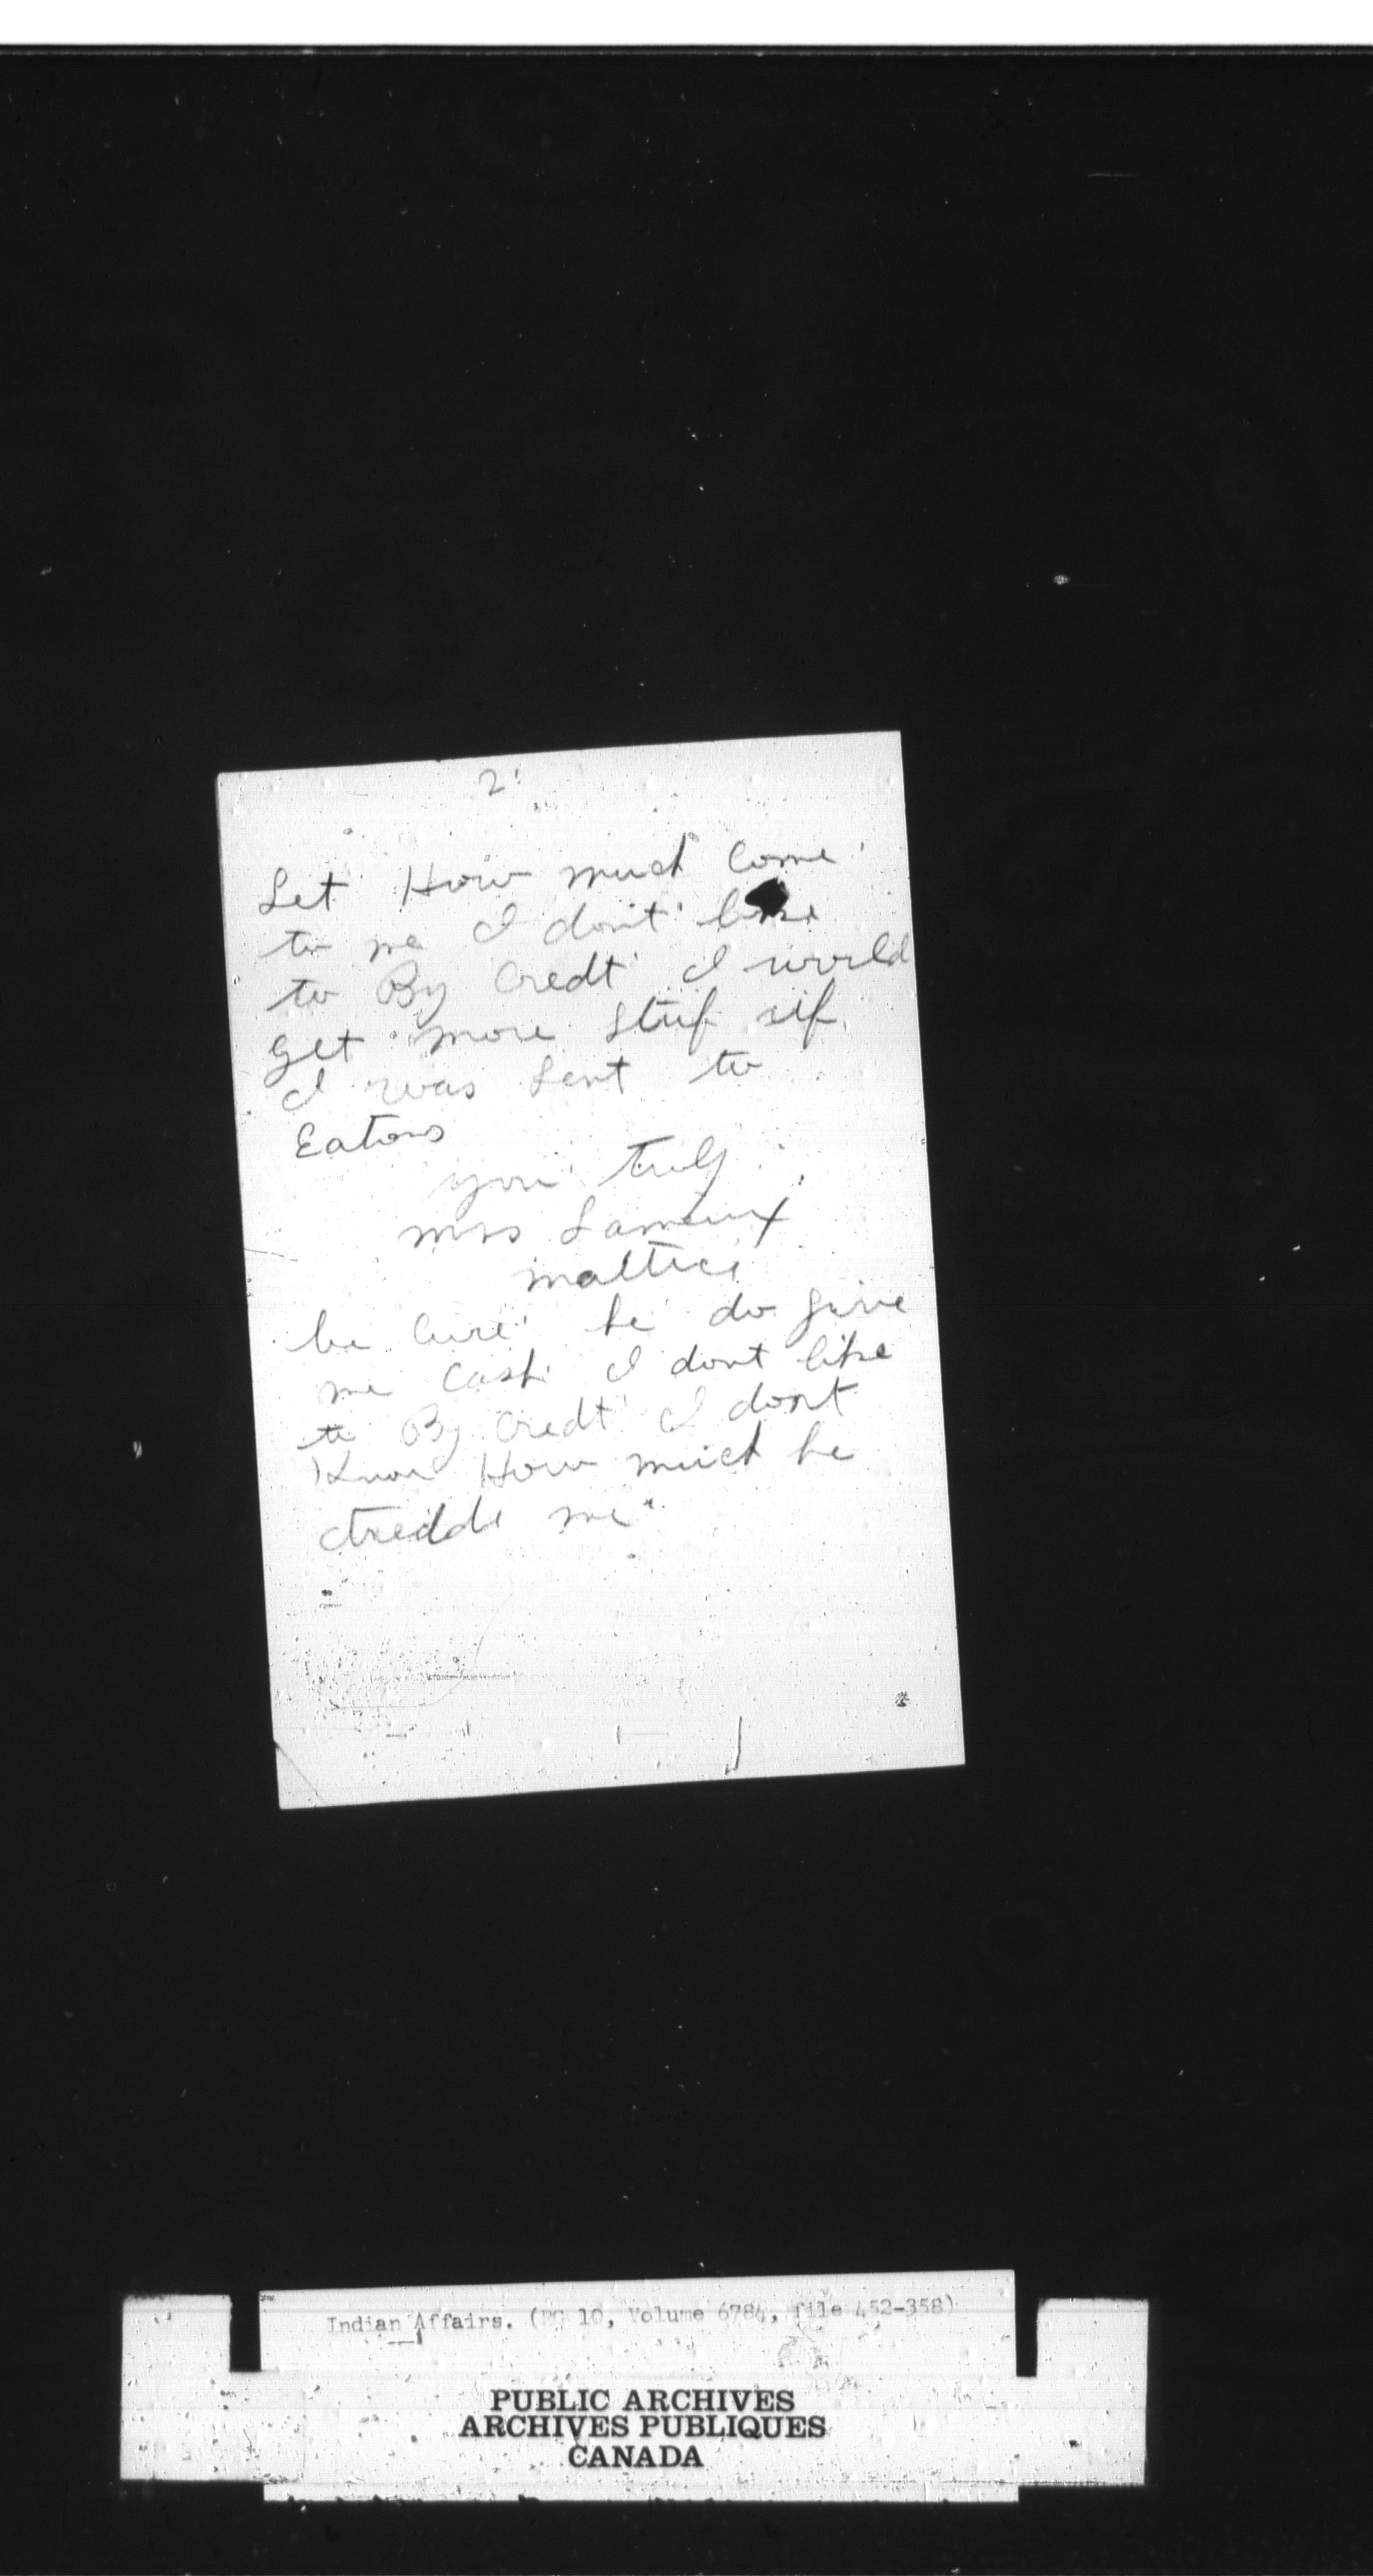 2
Let How much come
to me I dont
to By Credt I world
get more stuf if
I was sent to
Eatons
your truly
mrs Lameux
mattice
be Cure he do give
me Cash I dont like
to By Credt I dont
Know How much he
me
Indian Affairs. (RG 10, Volume 6784, file 452-358)
PUBLIC ARCHIVES
ARCHIVES PUBLIQUES
CANADA